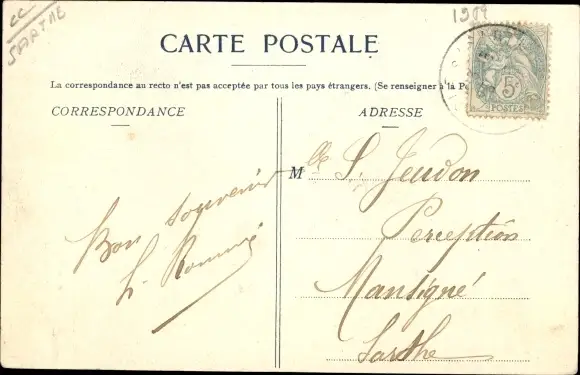 cc
SARTHE
CARTE POSTALE
La correspondance au recto n'est pas acceptée par tous les pays étrangers. (Se renseigner à la
CORRESPONDANCE
ADRESSE
5c
POSTES
Bon souvenir
Mlle S. Jeudon
Perception
Mansigné
Sarthe